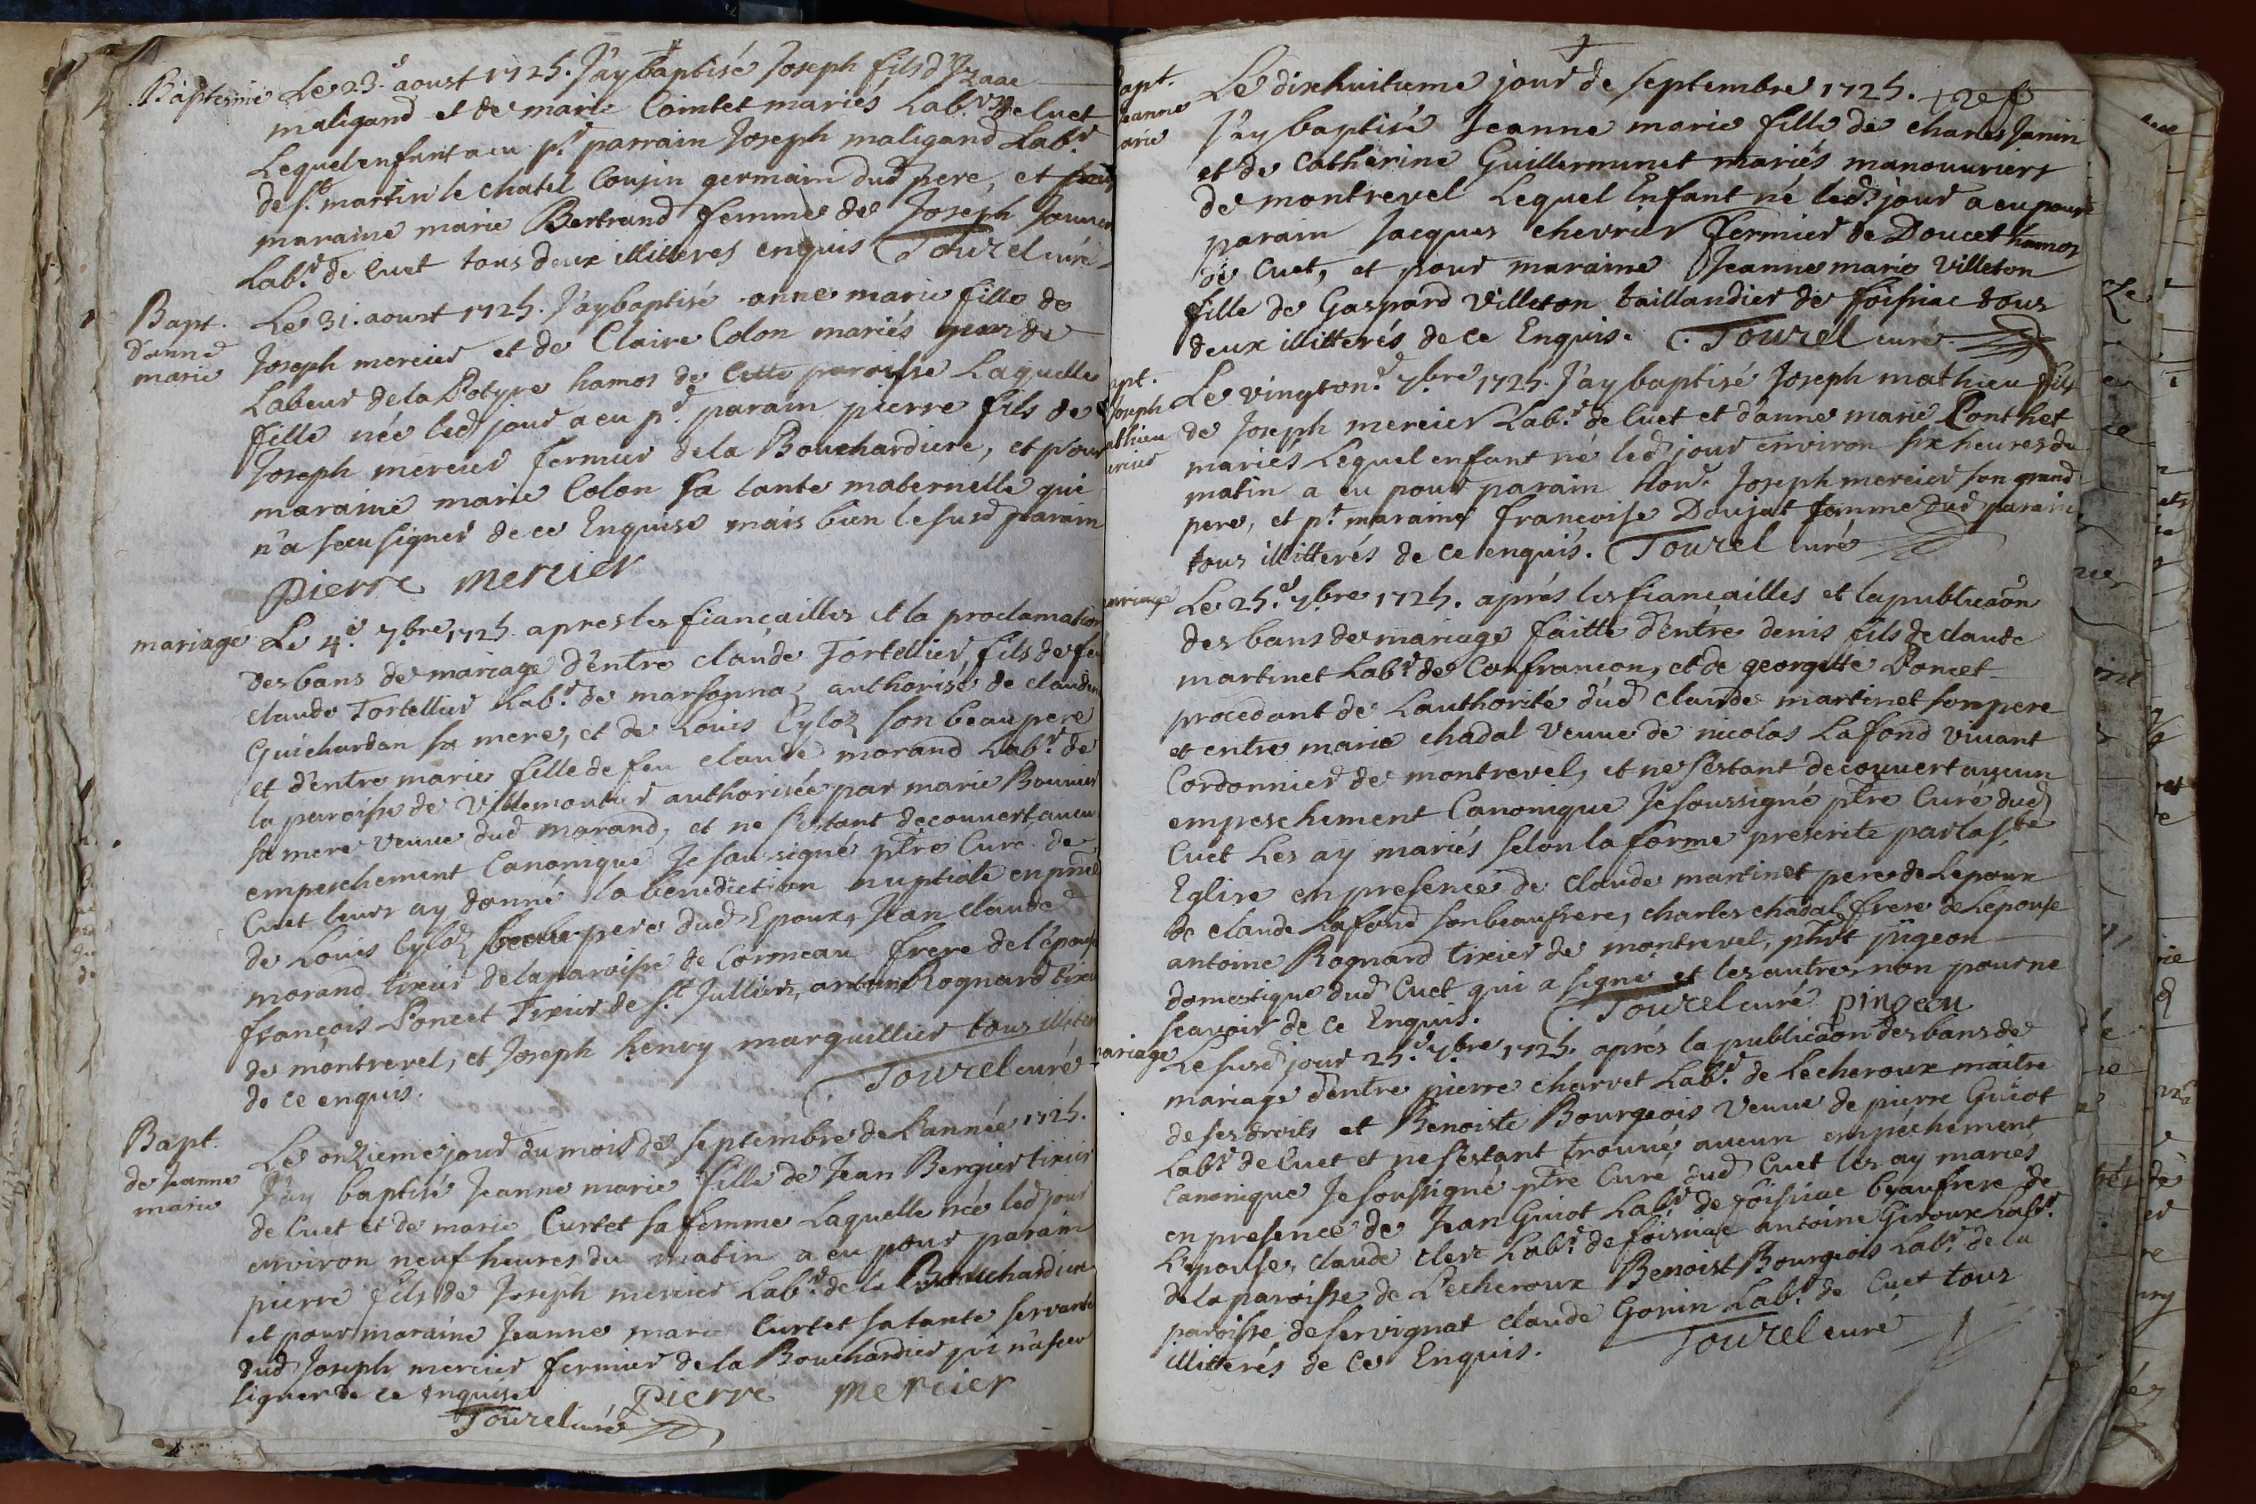 Baptesme Le 23.e aoust 1725. J'ay baptisé Joseph fils d'Yzaac
maligand et de marie Cointet mariés Lab.rs de Cuet
Lequel enfant a eu p.r parrain Joseph maligand Lab.r
de S.t martin le chatel Cousin germain dud pere, et
maraine marie Bertrand femme de Joseph
Lab.r de Cuet tous deux illitteres enquis Tourel curé
Bapt.
d'anne
marie
Le 31. aoust 1725. J'ay baptisé anne marie fille de
Joseph mercier et de Claire Colon mariés de
Labeur de la Potyre hamos de Cette paroisse Laquelle
fille née led jour a eu p.r parain pierre fils de
Joseph mercier fermier de la Bouchardiere, et pour
maraine marie Colon sa tante maternelle qui
n'a sceu signer de ce Enquise mais bien le susd parain
pierre mercier
mariage Le 4.e 7.bre 1725. apres les fiançailles et la proclamation
des bans de mariage d'entre claude Tortellier, fils de feu
claude Tortellier Lab.r de marsonna, authorisé de claudine
Guichardan sa mere, et de Louis Cyloz son beau pere
et d'entre marie fille de feu claude morand Lab.r de
la paroisse de Villemoutier authorisée par marie
sa mere veuve dud morand, et ne s'estant decouvert aucun
empeschement Canonique Je sousigné ptre Curé de
Cuet leurs ay donné la benediction nuptiale en pnce
de Louis Cyloz beau pere dud Epoux, Jean claude
morand tixier de la paroisse de Cormeau frere de l'épouse
françois Poncet Tixier de S.t Jullien, antoine Rognard tixier
de montrevel, et Joseph henry marguillier tous illiteres
de ce enquis. Tourel curé
Bapt.
de Jeanne
marie
Le onzieme jour du mois de septembre de L'année 1725.
J'ay baptisé Jeanne marie fille de Jean Bergier tixier
de Cuet et de marie Curtet sa femme Laquelle née led jour
environ neuf heures du matin a eu pour parain
pierre fils de Joseph mercier Lab.r de la Bouchardiere
et pour maraine Jeanne marie Curtet sa tante servante
dud Joseph mercier fermier de la Bouchardier qui n'a sceu
signer de ce enquise pierre mercier
Tourel curé
apt.
eanne
arie
Le dixhuitieme jour de septembre 1725.
J'ay baptisé Jeanne marie fille de charles Janin
et de Catherine Guillerminet mariés manouuriers
de montrevel Lequel Enfant né led jour a eu pour
parain Jacques chevrier fermier de Doucet hamos
de Cuet, et pour maraine Jeanne marie Villeton
fille de Gaspard Villeton taillandier de foissiac tous
deux illitterés de ce Enquis. Tourel curé
apt.
Joseph
athieu
ercier
Le vingt on.e 7bre 1725. J'ay baptisé Joseph mathieu fils
de Joseph mercier Lab.r de Cuet et d'anne marie Ponthet
mariés Lequel enfant né led jour environ six heures de
matin a eu pour parain hon. Joseph mercier son grand
pere, et p.r maraine françoise Doujat femme dud parain
tous illitterés de ce enquis. Tourel curé
ariage Le 25.e 7.bre 1725. aprés les fiancailles et la publicaon
des bans de mariage faitte d'entre denis fils de claude
martinet Lab.r de Confrançon, et de georgette Poncet
procedant de Lauthorité dud claude martinet son pere
et entre marie chadal veuve de nicolas Lafond vivant
Cordonnier de montrevel, et ne s'estant decouvert aucun
empeschement Canonique Je soussigné ptre Curé dud
Cuet Les ay mariés selon la forme prescrite par la ste
Eglise en presence de claude martinet pere de Lepoux
de claude Lafond son beaufrere, charles chadal frere de Lepouse
antoine Rognard tixier de montrevel, phbt pigeon
domestique dud Cuet qui a signé et les autres non pour ne
scavoir de ce Enquis. Tourel curé pingeon
ariage Le susd jour 25.e 7.bre 1725. aprés la publicaon des bans de
mariage d'entre pierre charvet Lab.r de Lecheroux maitre
de ses droits et Benoiste Bourgeois veuve de pierre Guiot
Lab.r de Cuet et ne s'estant trouvé aucun empéchement
Canonique Je soussigné ptre Curé dud Cuet les ay mariés
en presence de Jean Guiot Lab.r de foissiac beaufrere de
Lepouse, claude clerc Lab.r de foissiac antoine Giroux Lab.r
de la paroisse de Lecheroux Benoist Bourgeois Lab.r de la
paroisse de servignat claude Gonin Lab.r de Cuet tous
illitterés de Ce Enquis. Tourel curé